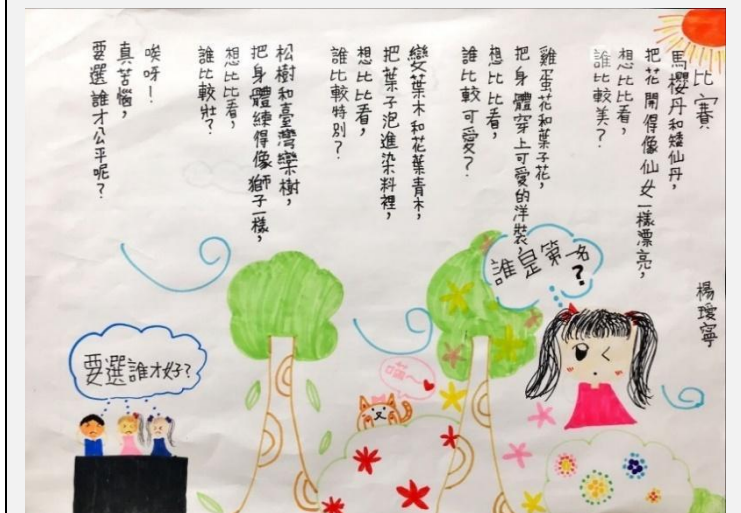 比賽
楊璦寧
馬櫻丹和矮仙丹，
把花開得像仙女一樣漂亮，
想比比看，
誰比較美？
雞蛋花和葉子花，
把身體穿上可愛的洋裝，
想比比看，
誰比較可愛？
變葉木和花葉青木，
把葉子泡進染料裡，
想比比看，
誰比較特別？
松樹和臺灣欒樹，
把身體練得像獅子一樣，
想比比看，
誰比較壯？
唉呀！
真苦惱，
要選誰才公平呢？
誰是第一名？
要選誰才好？